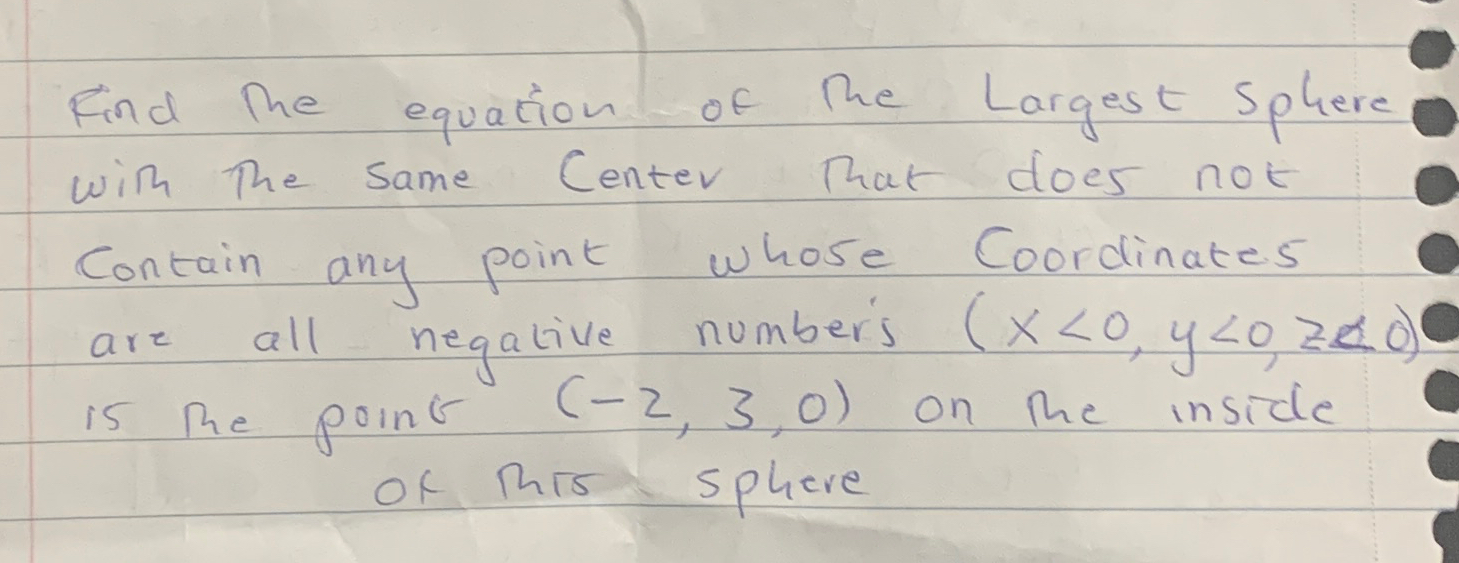 Find the equation of the Largest sphere
with the same Center that does not
Contain any point whose Coordinates
are all negative numbers (x<0, y<0, z<0)
is the point (-2, 3, 0) on the inside
of this sphere